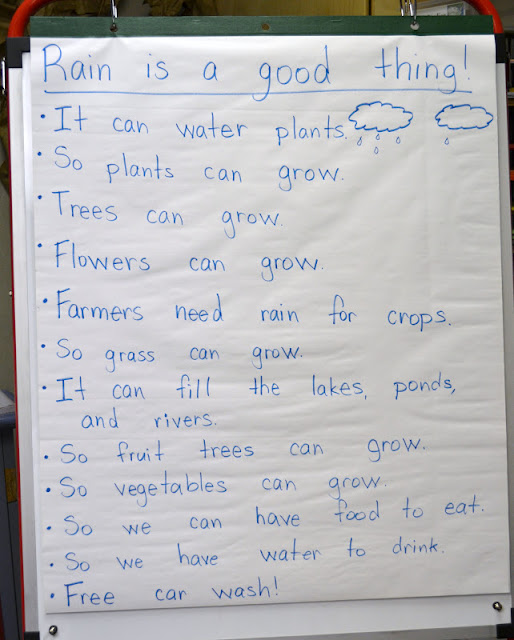 Rain is a good thing!
• It can water plants.
• So plants can grow.
• Trees can grow.
• Flowers can grow.
• Farmers need rain for crops.
• So grass can grow.
• It can fill the lakes, ponds,
and rivers.
• So fruit trees can grow.
• So vegetables can grow.
• So we can have food to eat.
• So we have water to drink.
• Free car wash!